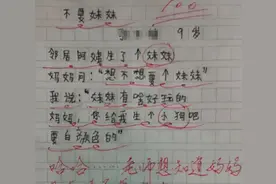 不要妹妹
100
9岁
邻居阿姨生了个妹妹
妈妈问:“想不想要个妹妹”
我说:“妹妹有啥好玩的
妈妈,您给我生个小狗吧
要白颜色的”
哈哈 老师想知道妈妈